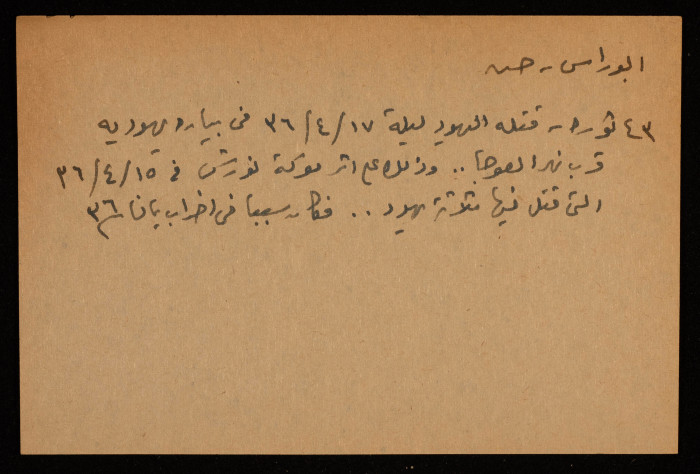 ابو راس - حسن
٤٣ ثورة - قتله اليهود ليلة ١٧/٤/٣٦ في بيارة يهودية
قرب نهر العوجا .. وذلك على اثر معركة نورشمس في ١٥/٤/٣٦
التي قتل فيها ثلاثة يهود .. فكان سببا في اضراب يافا ٣٦